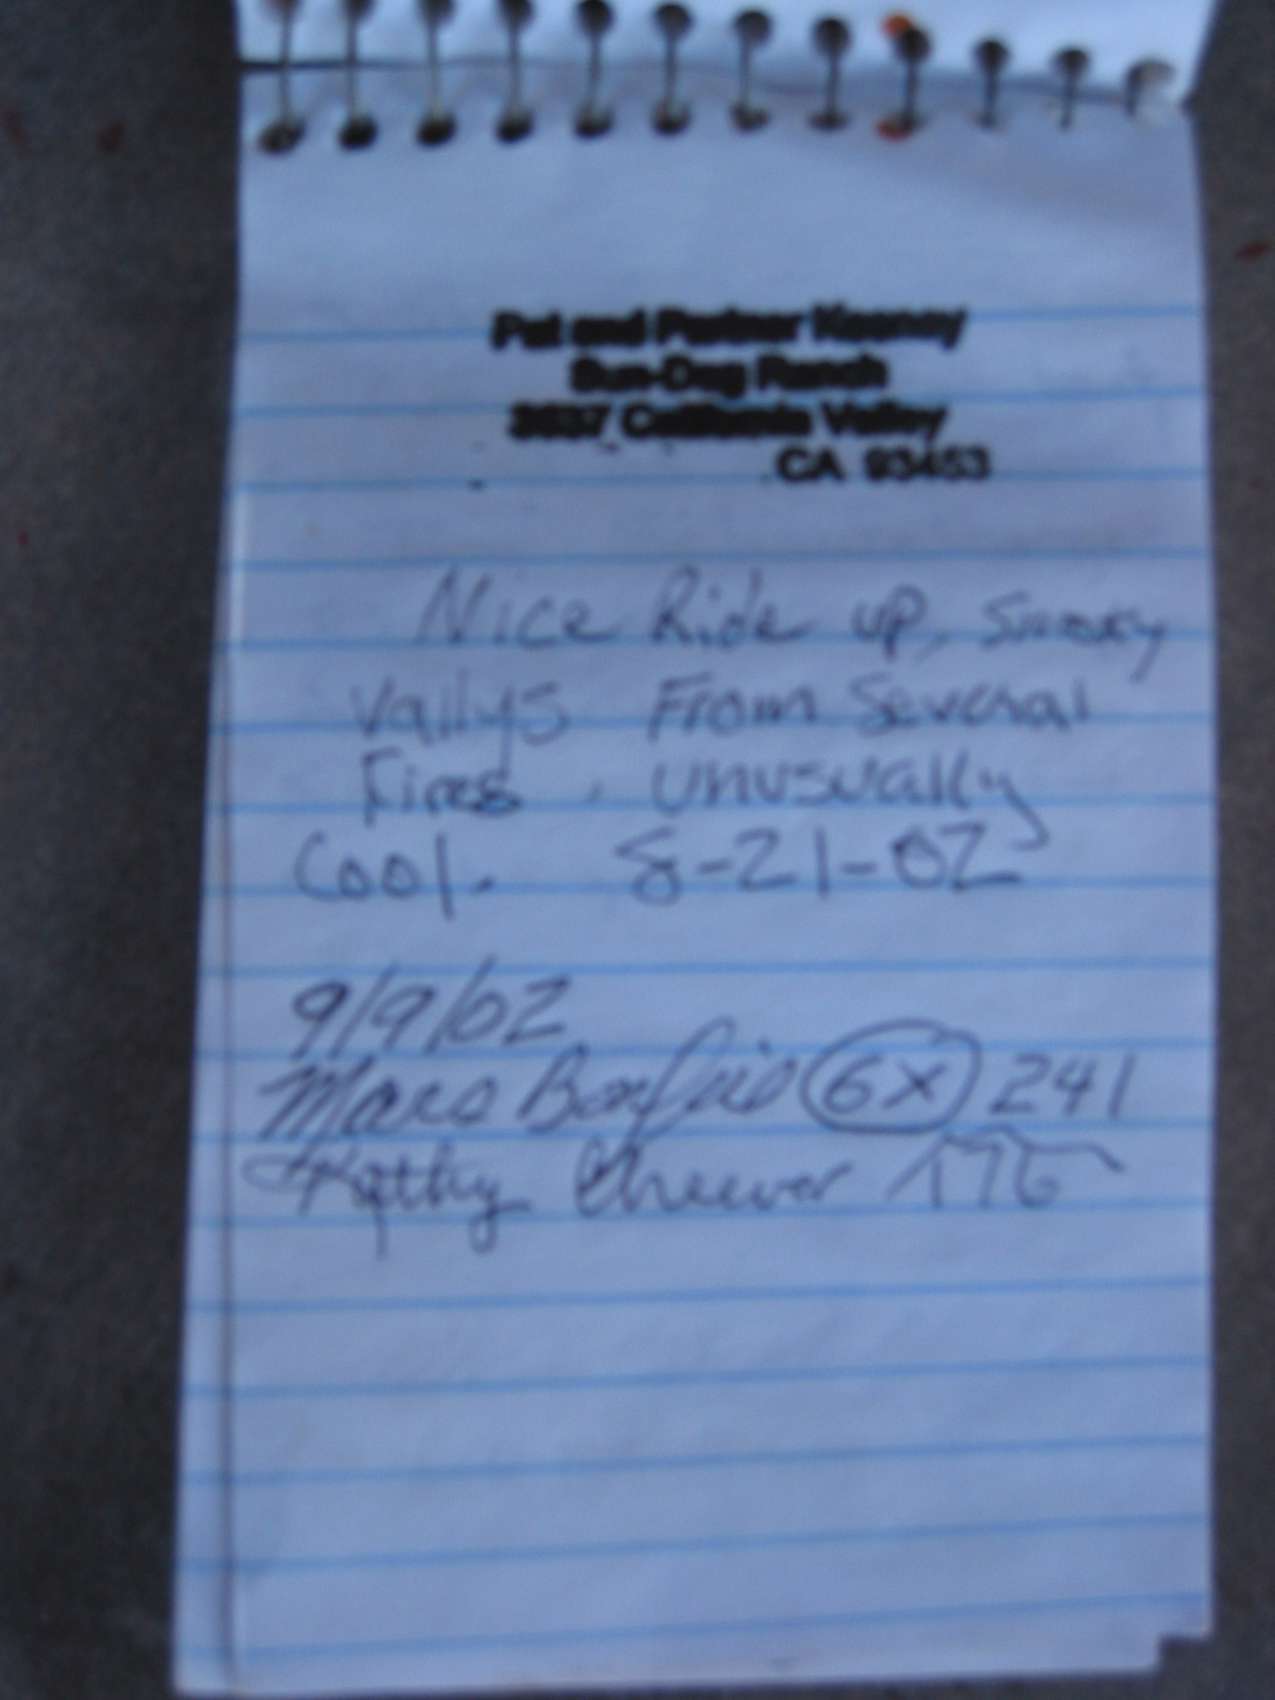 Pat and Partner Keeney
Sun-Dog Ranch
3637 California Valley
CA 93453
Nice Ride up, Smoky
Vallys From Several
Fires, unusually
Cool. 8-21-02
9/9/02
6X 241
Kathy Cheever 176